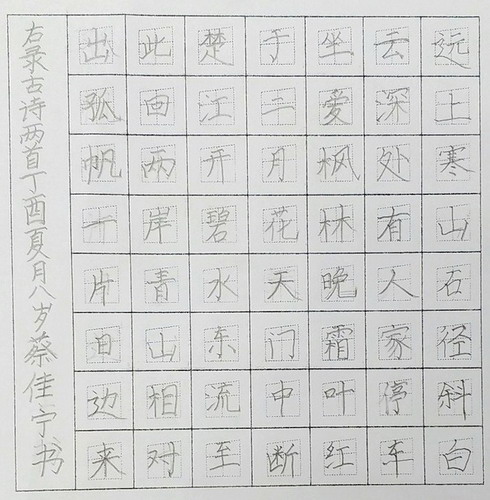 远上寒山石径斜白
云深处有人家停车
坐爱枫林晚霜叶红
于二月花天门中断
楚江开碧水东流至
此回两岸青山相对
出孤帆一片日边来
右录古诗两首丁酉夏月八岁蔡佳宁书